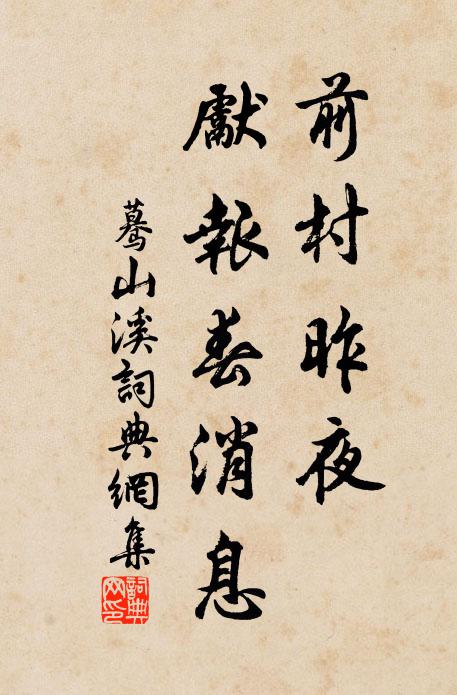 前村昨夜
獻報春消息
驀山溪詞典網集
詞典網印